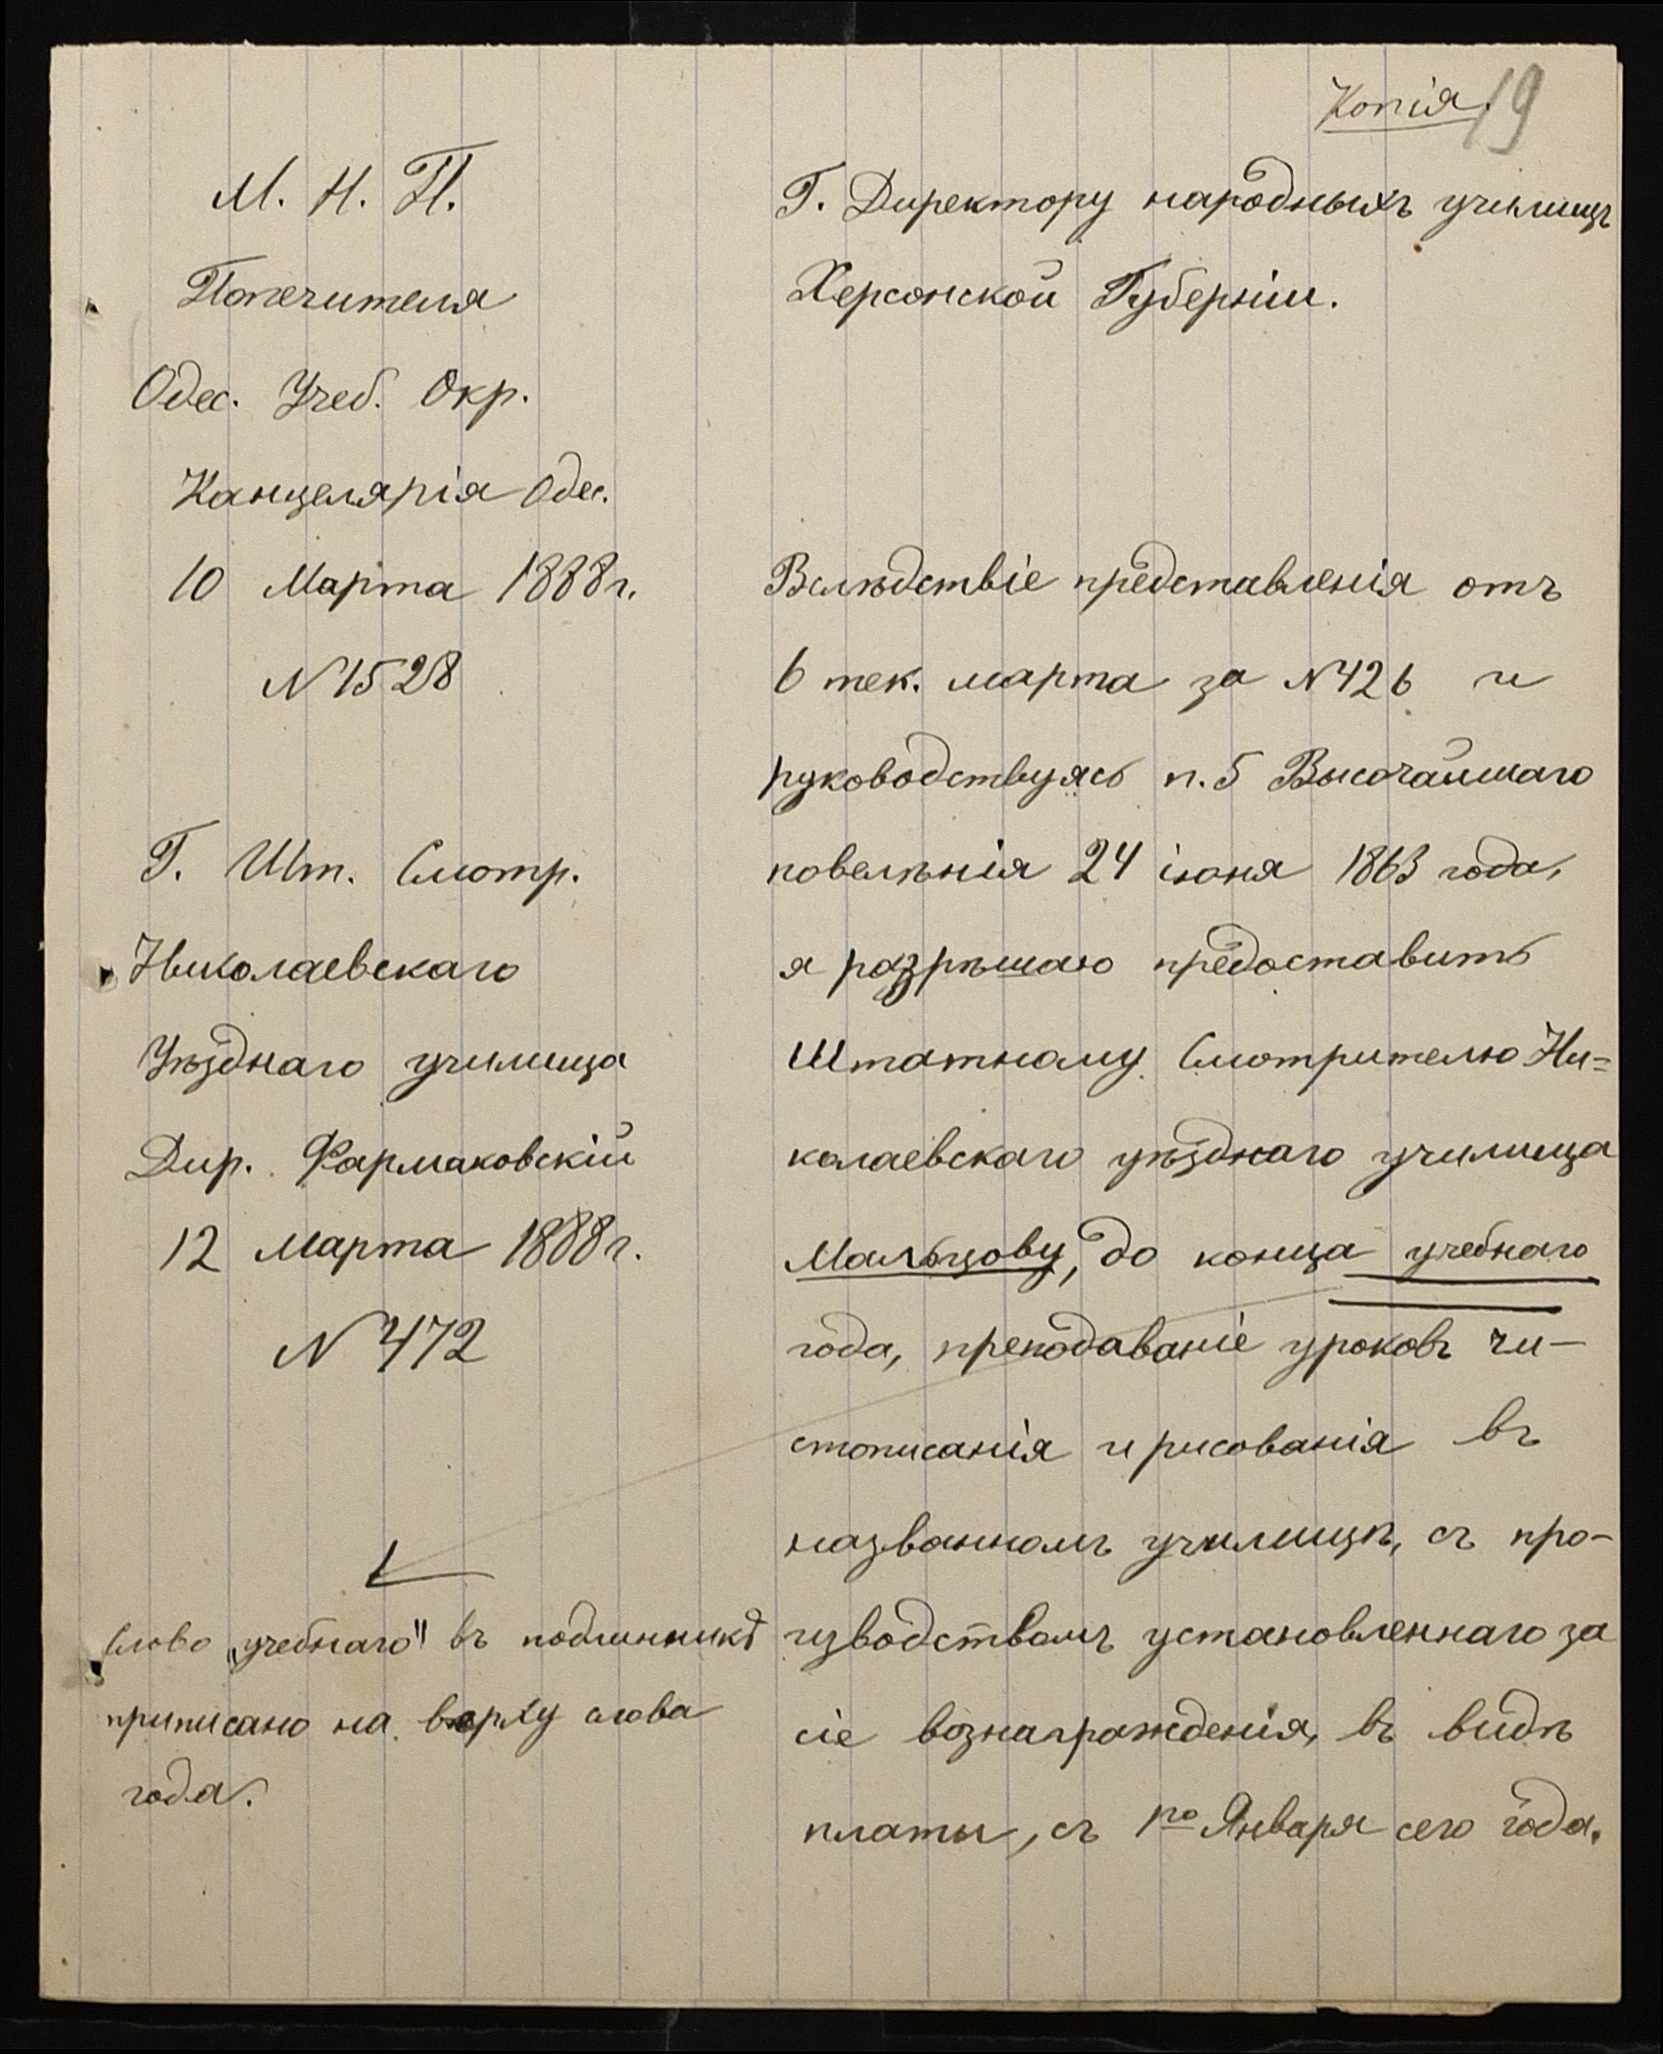 Копія.
19
М. Н. П.
Попечителя
Одес. Учеб. Окр.
Канцелярія Одес.
10 Марта 1888 г.
N 1528
Г. Шт. Смотр.
Николаевскаго
Уѣзднаго училища
Дир. Фармаковскій
12 марта 1888 г.
N 472
Слово „учебнаго" въ подлинникѣ
приписано на верху слова
года.
Г. Директору народныхъ училищъ
Херсонской Губерніи.
Вслѣдствіе представленія отъ
6 тек. марта за N 426 и
руководствуясь п. 5 Высочайшаго
повелѣнія 24 іюня 1863 года,
я разрѣшаю предоставить
Штатному Смотрителю Ни=
колаевскаго уѣзднаго училища
Мальцову, до конца учебнаго
года, преподаваніе уроковъ чи-
стописанія и рисованія въ
названномъ училищѣ, съ про-
изводствомъ установленнаго за
сіе вознагражденія, въ видѣ
платы, съ 1го Января сего года.